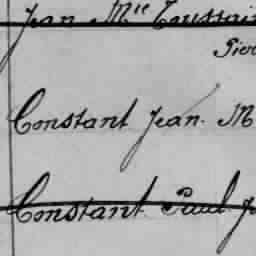 Jean Mie Toussai
Pier
Constant Jean. M
Constant Paul J